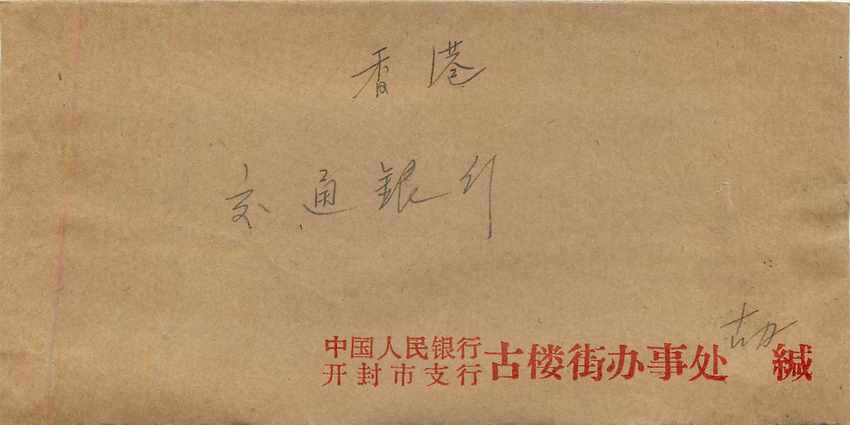 香港
交通銀行
中国人民银行
开封市支行
古楼街办事处 古办 缄